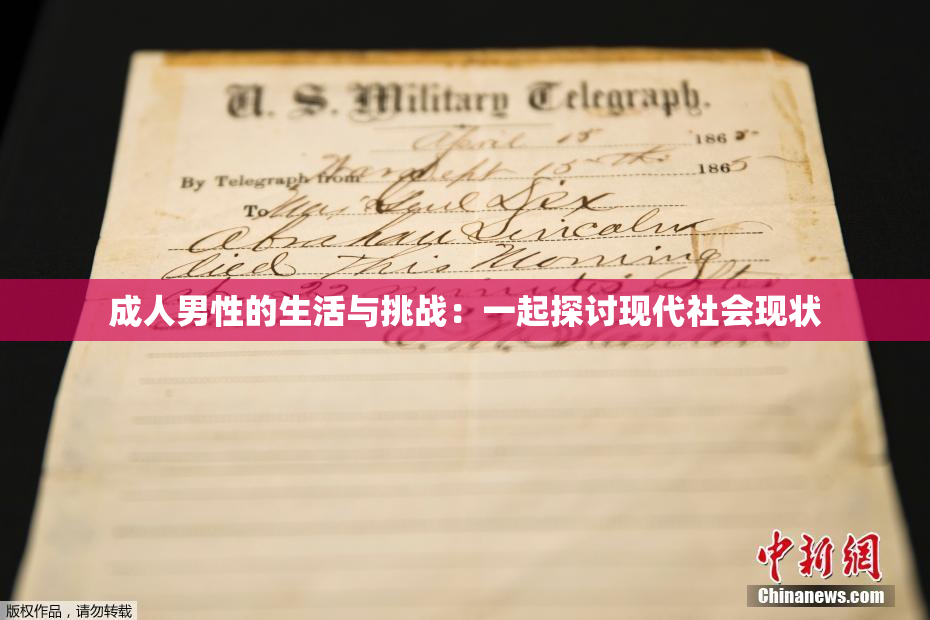 U. S. Military Telegraph.
April 15 1865
By Telegraph from War Dept 15th 1865
To Maj Genl Dix
Abraham Lincoln
died This Morning
at 22 minutes after
成人男性的生活与挑战：一起探讨现代社会现状
E. M. Stanton
中新網
Chinanews.com
版权作品，请勿转载